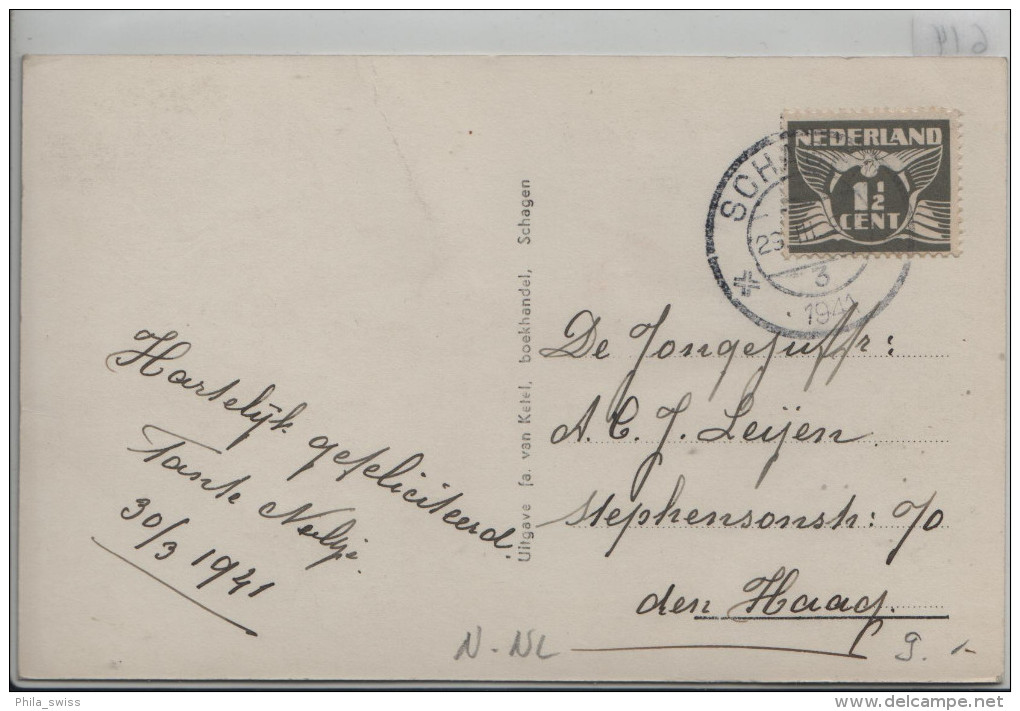 614
NEDERLAND
1½
CENT
SCHA
29 III
3
1941
Hartelijk gefeliciteerd.
Tante Neeltje.
30/3 1941
Uitgave fa. van Ketel, boekhandel, Schagen
De Jongejuffr:
A. C. J. Leijen
Stephensonstr: 70
den Haag.
N-NL
9. -
Phila_swiss
www.delcampe.net